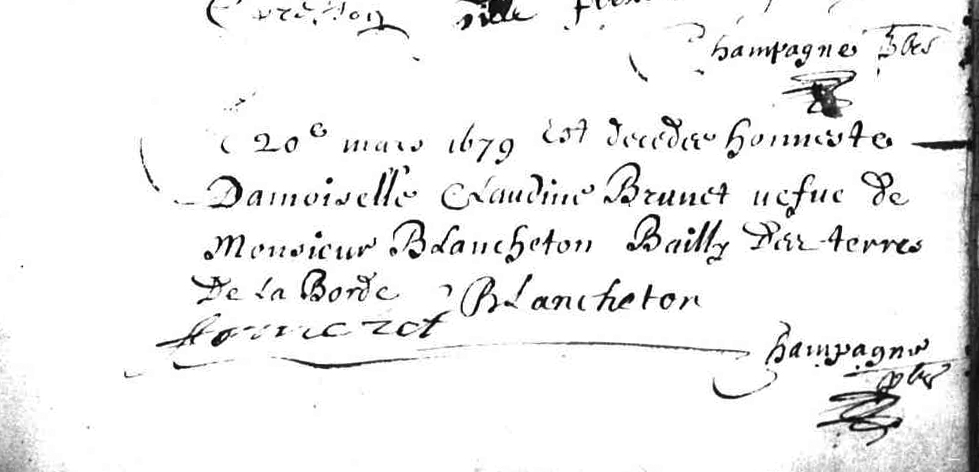 Champagne pbre
Le 20e mars 1679 Est decedee honneste
Damoiselle Claudine Brunet uefue de
Monsieur Blancheton Bailly des terres
De la Borde Blancheton
Champagne
pbre